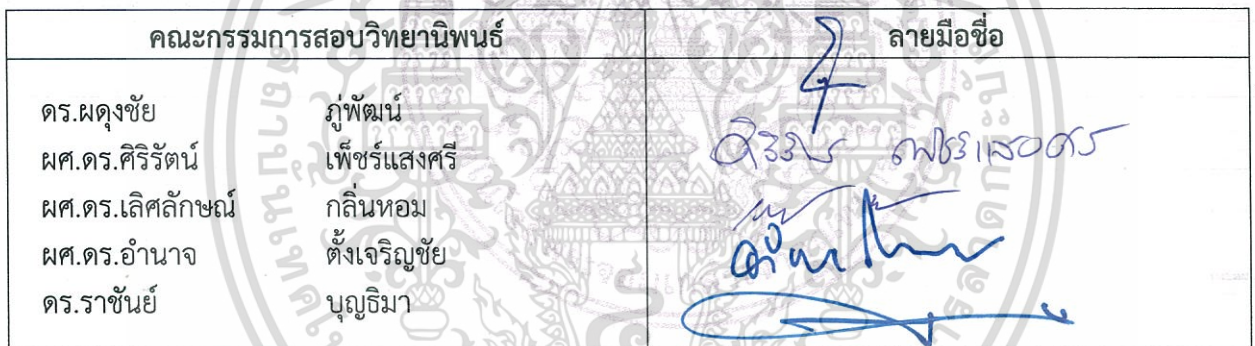 คณะกรรมการสอบวิทยานิพนธ์ ลายมือชื่อ
ดร.ผดุงชัย ภู่พัฒน์
ผศ.ดร.ศิริรัตน์ เพ็ชร์แสงศรี ศิริรัตน์ เพ็ชร์แสงศรี
ผศ.ดร.เลิศลักษณ์ กลิ่นหอม
ผศ.ดร.อำนาจ ตั้งเจริญชัย
ดร.ราชันย์ บุญธิมา